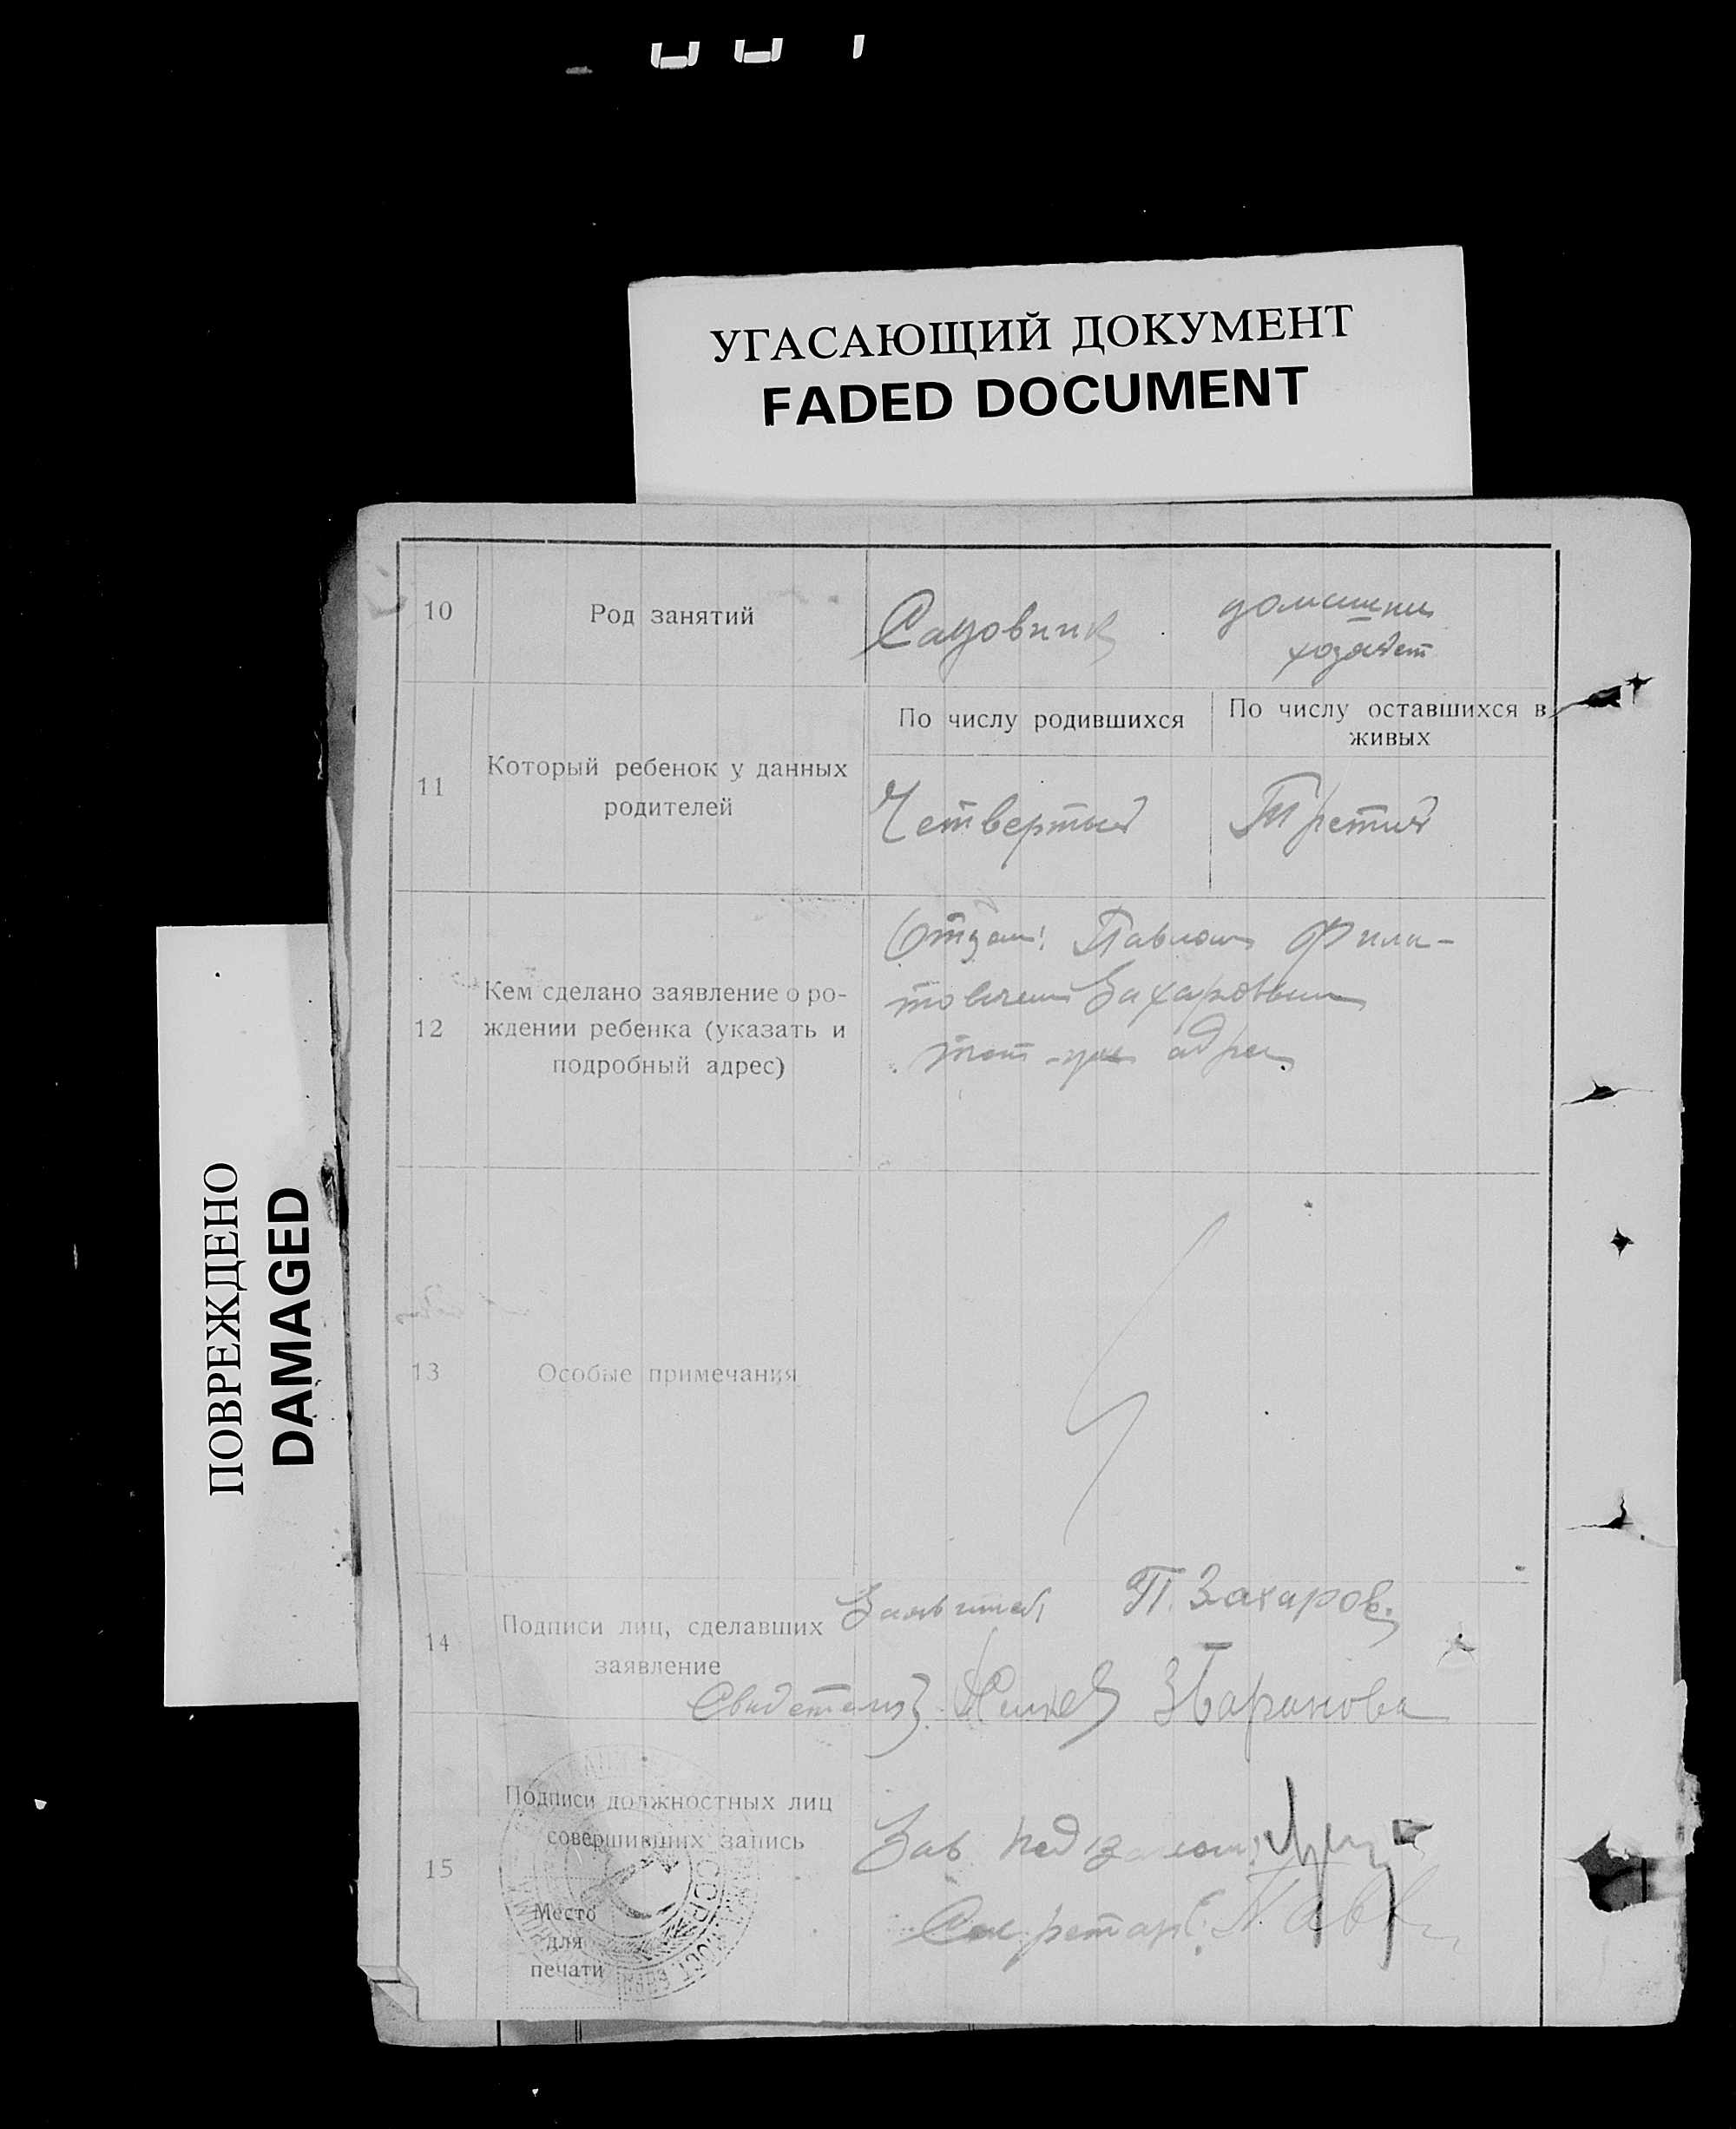 УГАСАЮЩИЙ ДОКУМЕНТ
FADED DOCUMENT
ПОВРЕЖДЕНО
DAMAGED
10 Род занятий Садовник домашн
хозяйст
11 Который ребенок у данных
родителей
По числу родившихся По числу оставшихся в
живых
Четвертый Третий
12 Кем сделано заявление о ро-
ждении ребенка (указать и
подробный адрес)
Отцом: Павлом Фила-
товичем Захаровым
тот-же адрес
13 Особые примечания
14 Подписи лиц, сделавших
заявление
Заявитель П. Захаров
Свидетели Баранова
15 Подписи должностных лиц
совершивших запись
Место
для
печати
Зав
Секретарь
СССР